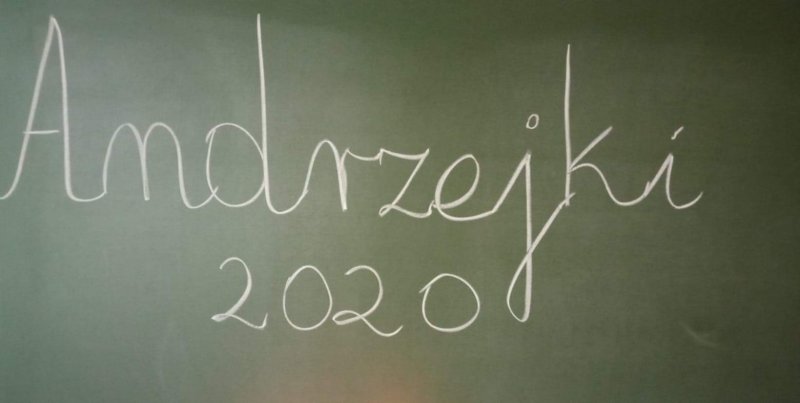 Andrzejki
2020